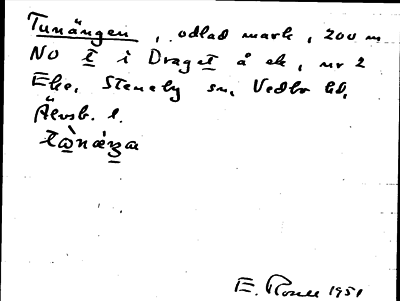 Tunängen, odlad mark, 200 m
NO t i Draget å ek, nr 2
Eke, Steneby sn, Vedbo hd,
Älvsb. l.
E. Rosell 1951